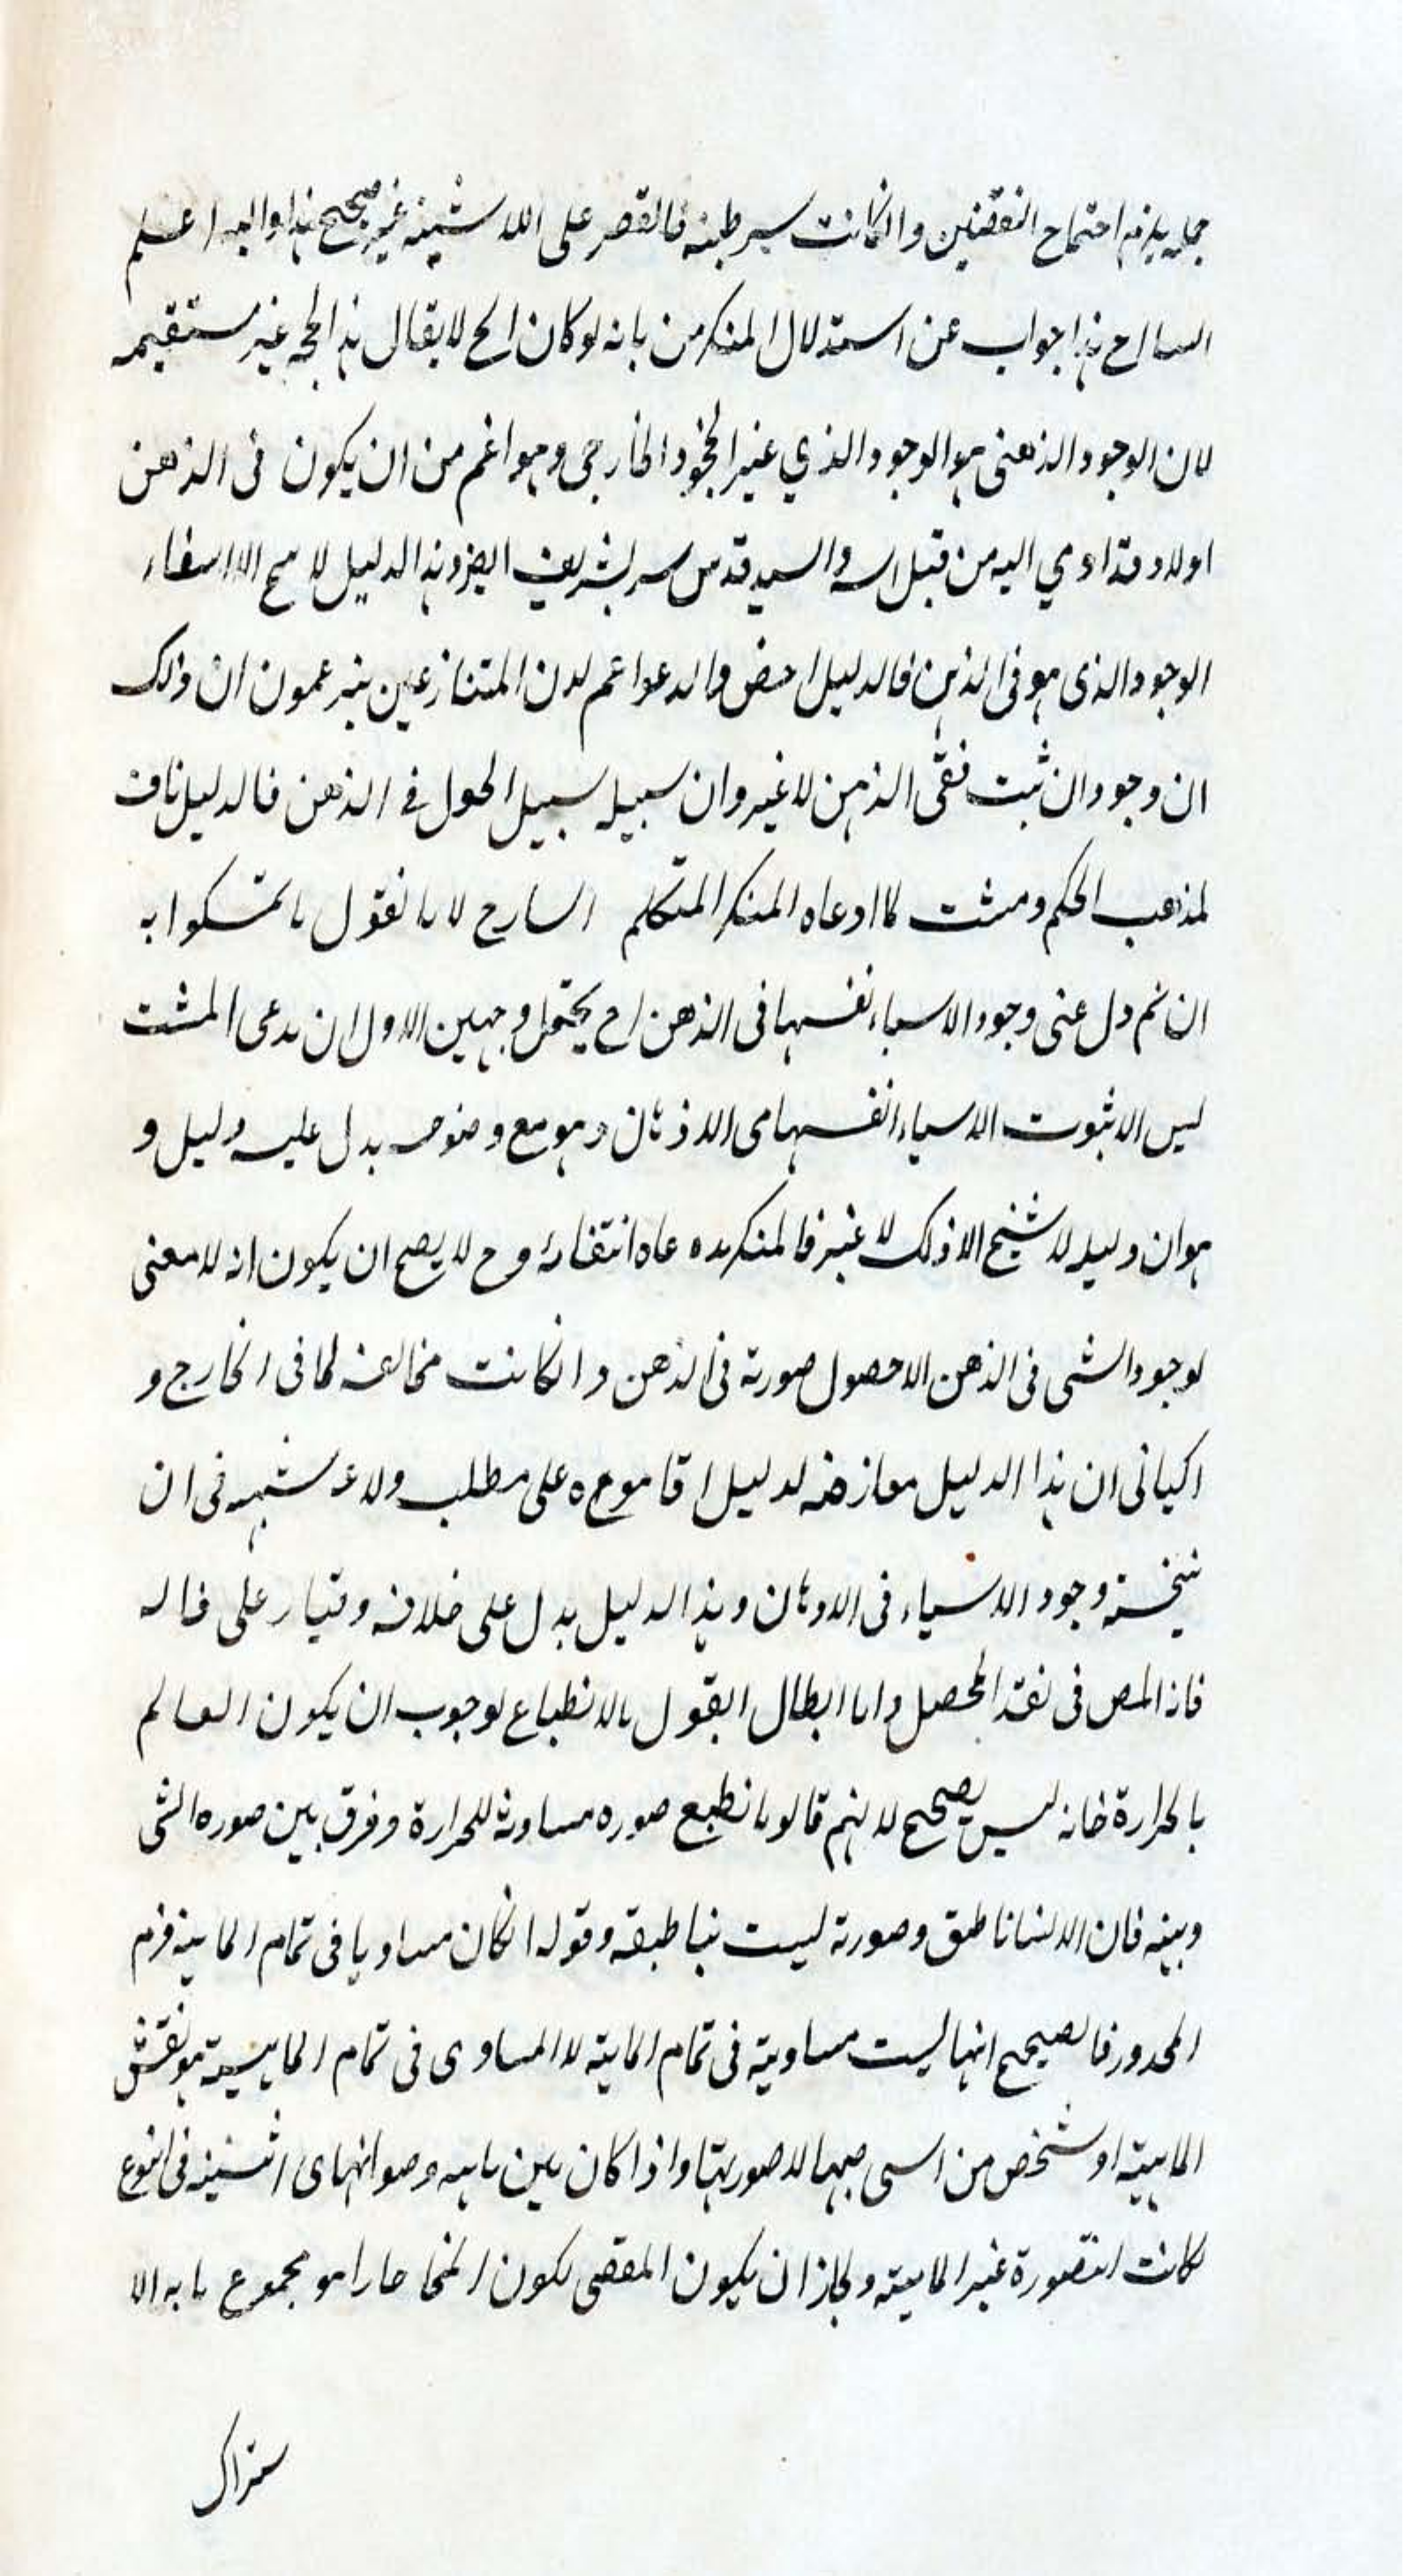 اجتماع النقضين وانكانت سرطيه فالقصر على اللا شيئه غير صحيح هذا والله اعلم
السارح هذا جواب عن استدلال المنكرين بانه لو كان الح لا يقال هذا الحجه غير مستقيمه
لان الوجود الذهنى هو الوجود الذي غير الوجود الخارجى وهو اعم من ان يكون فى الذهن
اولا وقد اومي اليه من قبل والسيد قدس سره الشريف ايضا وهذا الدليل لا الا انتفاء
الوجود الذى هو فى الذهن فالدليل اخص والدعوا اعم لان المتنازعين يزعمون ان ذلك
ان وجود ان ثبت ففى الذهن لا غير وان سبيله سبيل الحول فى الذهن فالدليل ناف
لمذهب الحكم ومثبت لما ادعاه المنكر المتكلم السارح لانا نقول ما تمسكوا به
ان تم دل على وجود الاسياء نفسها فى الذهن اح يحتمل وجهين الاول ان مدعى المثبت
ليس الا ثبوت الاسياء انفسها فى الاذهان وهو مع وضوحه يدل عليه دليل و
هو ان دليله لا ينتج الا ذلك لا غير فالمنكر عاه انتفائه وح لا يصح ان يكون انه لا معنى
لوجود الشى فى الذهن الا حصول صورته فى الذهن وانكانت مخالفه لما فى الخارج و
الثانى ان هذا الدليل معارضه لدليل اقاموه على مطلب ولا شبهه فى ان
نتيجته وجود الاشياء فى الاذهان وهذا الدليل يدل على خلافه على قاله
فان المص فى نقد المحصل واما ابطال القول بالانطباع لوجوب ان يكون العالم
بالحرارة فانه ليس بصحيح لانهم قالوا نطبع صوره مساويه للحرارة وفرق بين صوره الشى
وبينه فان الانسان ناطق وصورته ليست بناطقه وقوله انكان مساويا فى تمام الماهية لزم
المحدور فالصحيح انها ليست مساوية فى تمام الماهية لا المساوى فى تمام الماهية هو نفس
الماهية او شخص من لا صورتها واذا كان بين ماهيه اثنينيه فى النوع
لكانت الصورة غير الماهية ولجاز ان يكون المقتضى لكون المحل حارا هو مجموع ما به الا
ستراك